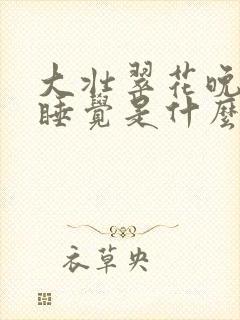 大壮翠花晚
睡覺是什麼
衣草央